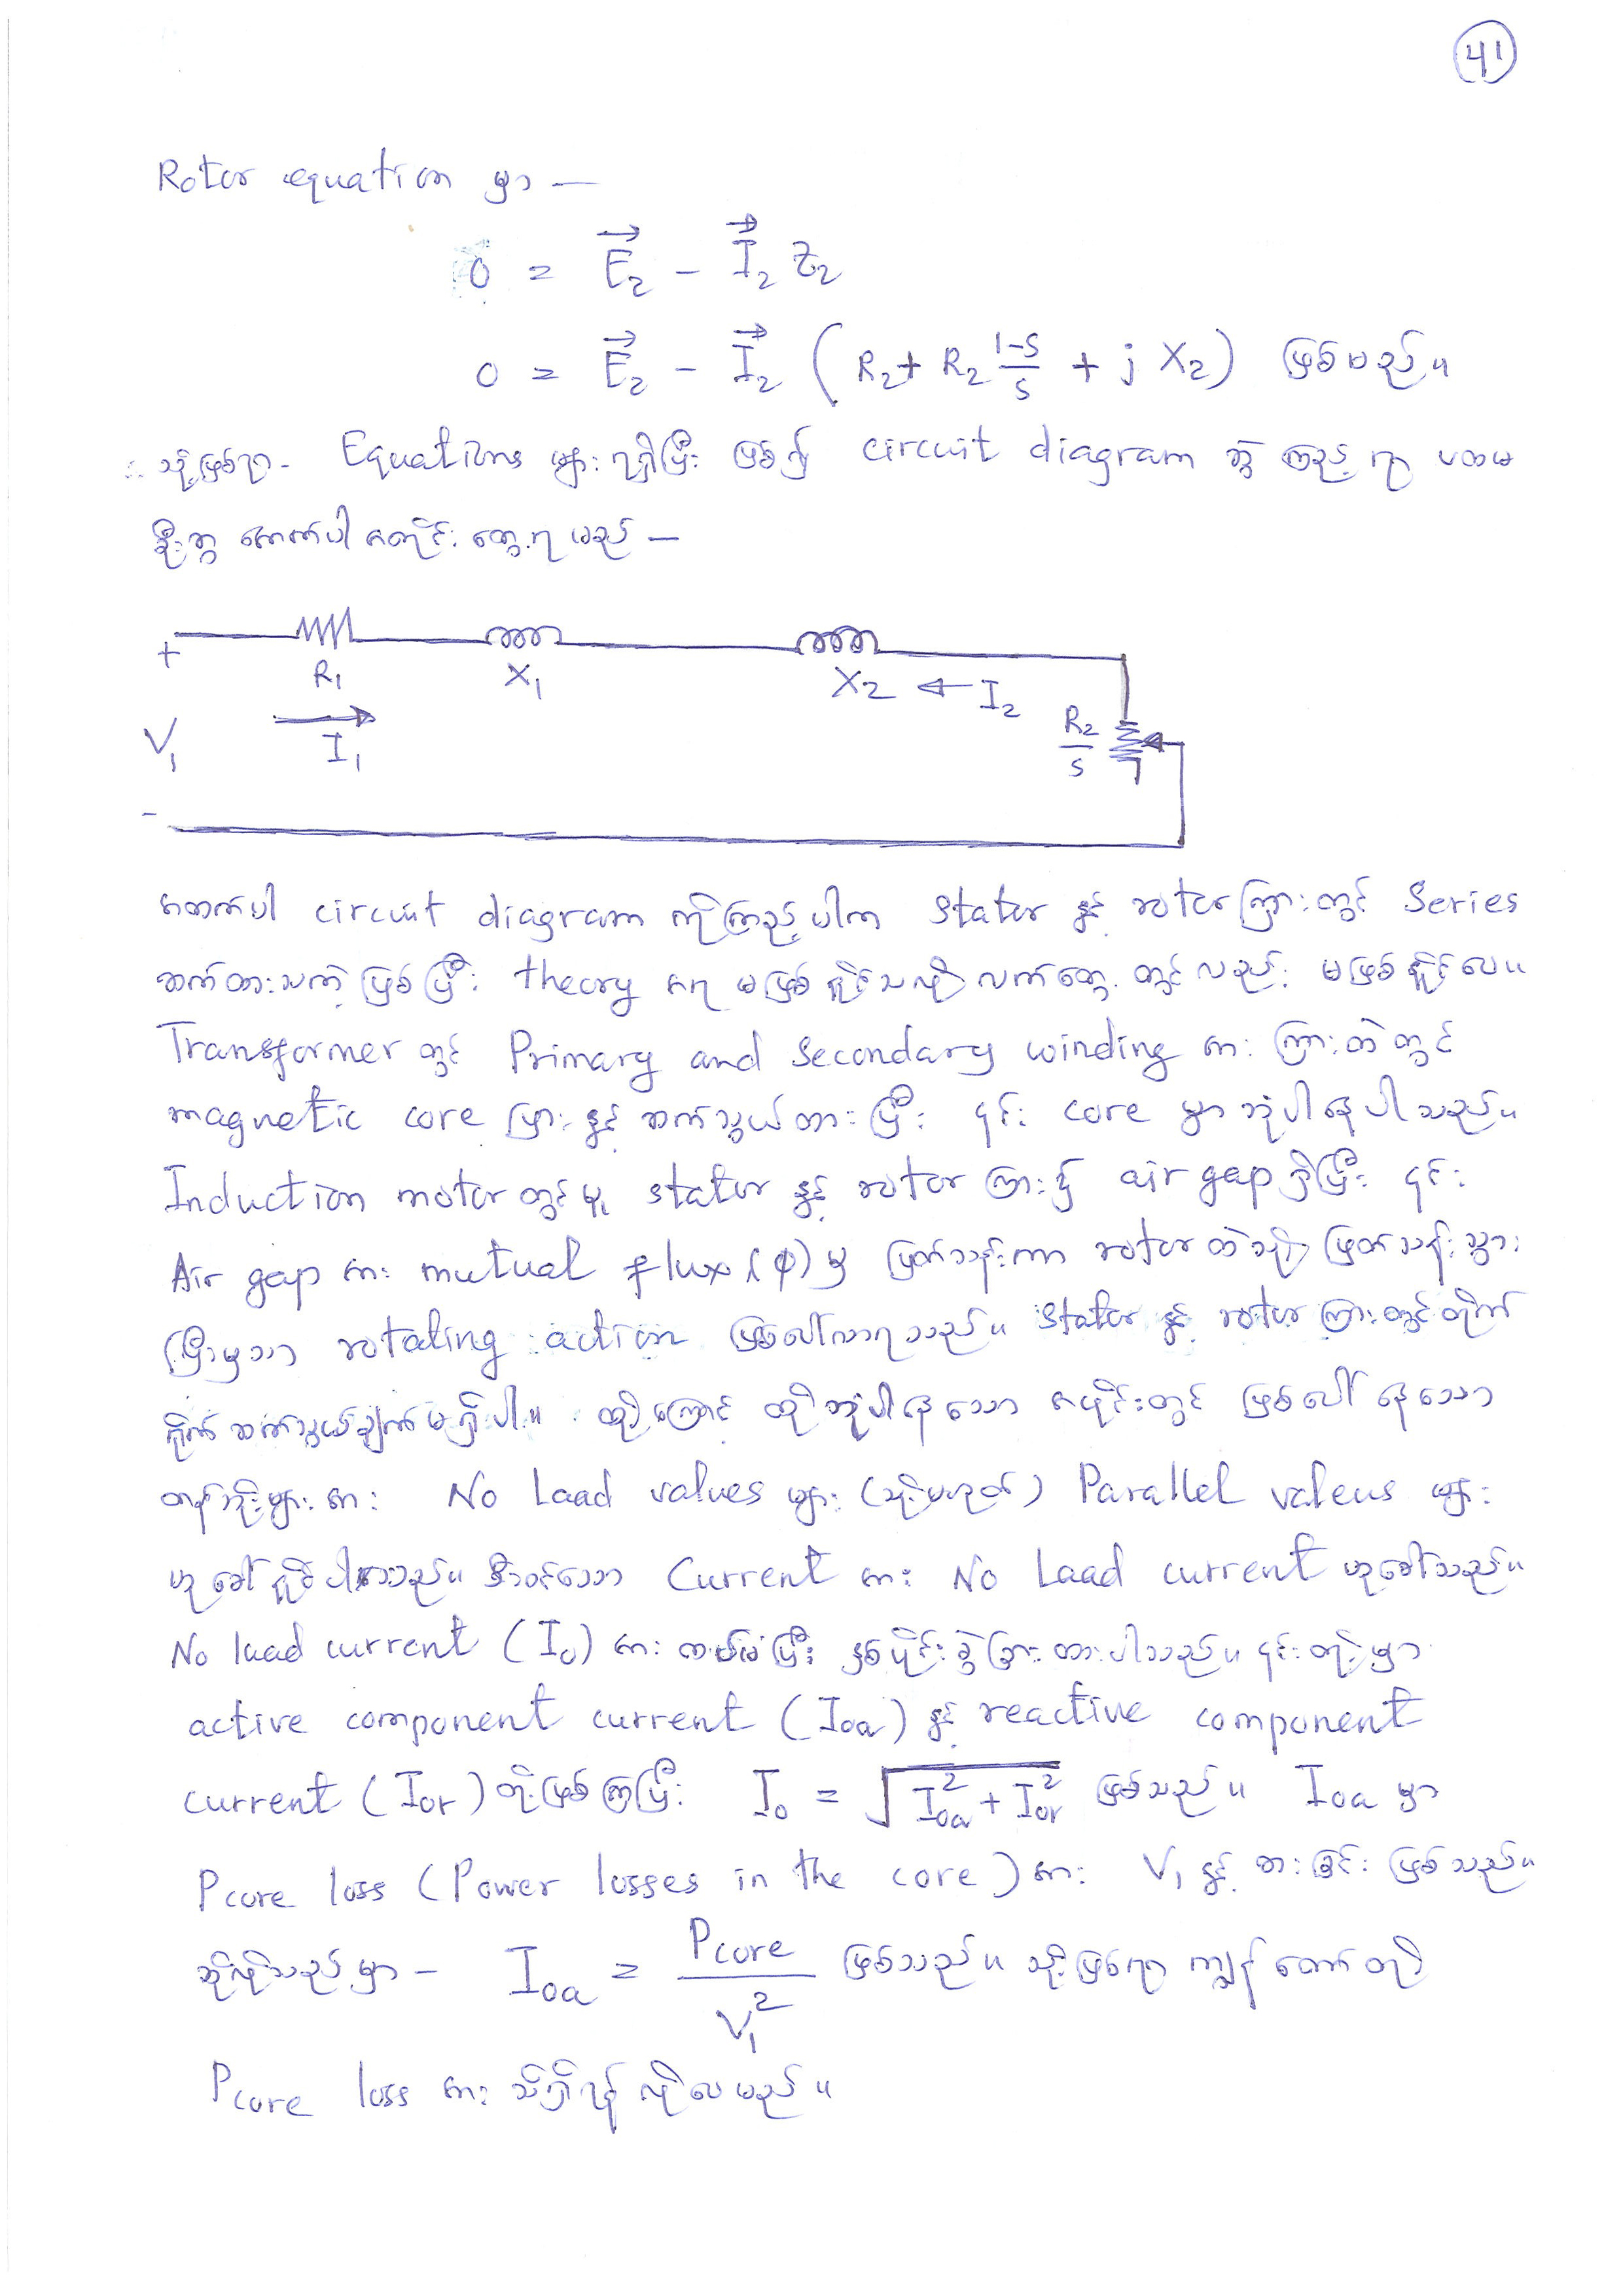 41
Rotor equation မှာ —
0 = E₂ − I₂ Z₂
0 = E₂ − I₂ ( R₂ + R₂ (1−S)/S + j X₂ ) ဖြစ်မည်။
∴ သို့ဖြစ်ရာ - Equations များရရှိပြီး ဖြစ်၍ circuit diagram ဆွဲ ကြည့်ရာ ပထမ
ဦးစွာ အောက်ပါအတိုင်း တွေ့ရမည် —
+ R₁ X₁ X₂ ← I₂
V₁ I₁ R₂/S
-
အထက်ပါ circuit diagram ကိုကြည့်ပါက Stator နှင့် rotor ကြားတွင် Series
ဆက်ထားသကဲ့ဖြစ်ပြီး theory အရ မဖြစ်နိုင်သလို လက်တွေ့တွင်လည်း မဖြစ်နိုင်ပေ။
Transformer တွင် Primary and Secondary winding အား ကြားထဲတွင်
magnetic core များနှင့် ဆက်သွယ်ထားပြီး ၎င်း core မှာ ဘုံပါနေပါသည်။
Induction motor တွင်မူ stator နှင့် rotor ကြား၌ air gap ရှိပြီး ၎င်း
Air gap အား mutual flux (φ) မှ ဖြတ်သန်းကာ rotor ထဲသို့ ဖြတ်သန်းသွား
ပြီးမှသာ rotating action ဖြစ်ပေါ်လာရသည်။ Stator နှင့် rotor ကြားတွင် တိုက်
ရိုက် ဆက်သွယ်ချက်မရှိပါ။ ထို့ကြောင့် ထိုဘုံပါနေသော အပိုင်းတွင် ဖြစ်ပေါ်နေသော
တန်ဘိုးများအား No Load values များ (သို့မဟုတ်) Parallel valeus များ
ဟုခေါ်နိုင်ပါသည်။ စီးဝင်သော Current အား No Load current ဟုခေါ်သည်။
No load current (I₀) အား ထပ်မံပြီး နှစ်ပိုင်းခွဲခြားထားပါသည်။ ၎င်းတို့မှာ
active component current (Ioa) နှင့် reactive component
current (Ior) တို့ဖြစ်ကြပြီး I₀ = √(Ioa² + Ior²) ဖြစ်သည်။ Ioa မှာ
Pcore loss (Power losses in the core) အား V₁ နှင့် စားခြင်း ဖြစ်သည်။
ဆိုလိုသည်မှာ - Ioa = Pcore / V₁² ဖြစ်သည်။ သို့ဖြစ်ရာ ကျွန်တော်တို့
Pcore loss အား သိရှိရန် လိုပေမည်။